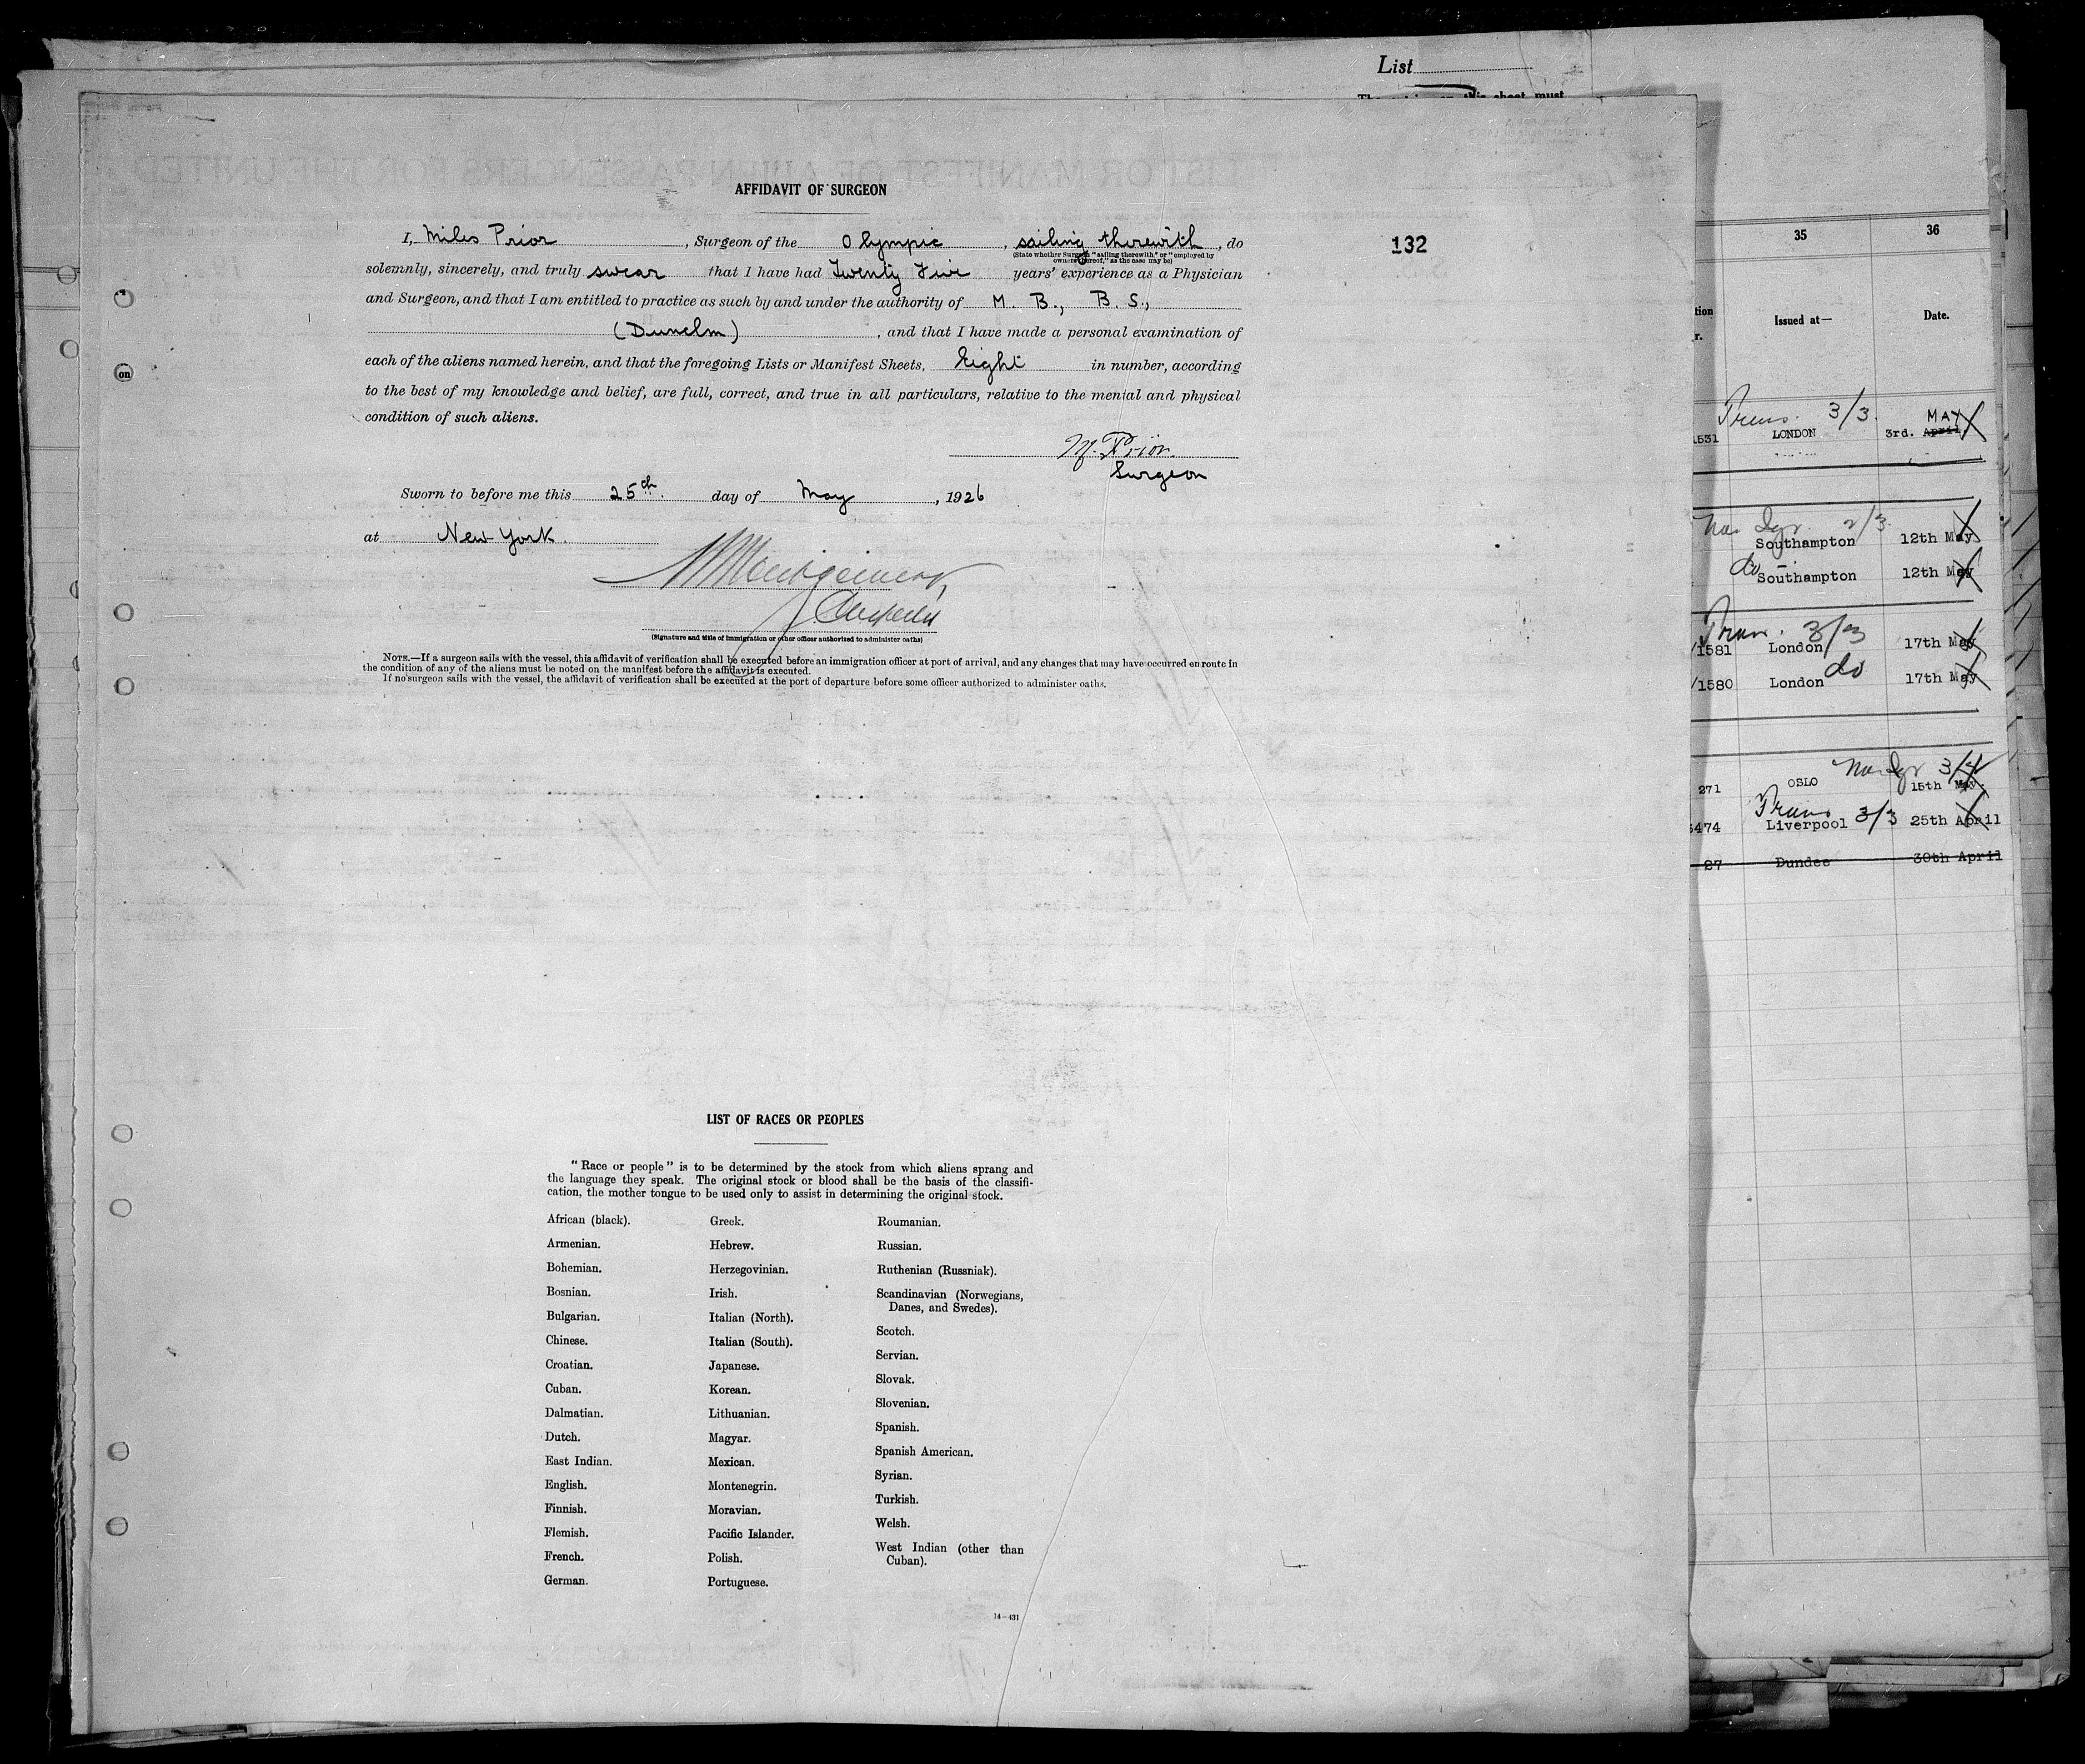 List
AFFIDAVIT OF SURGEON
132
I, Miles Prior, Surgeon of the Olympic, sailing therewith, do
(State whether Surgeon "sailing therewith" or "employed by
owners thereof," as the case may be)
solemnly, sincerely, and truly swear that I have had Twenty Five years' experience as a Physician
and Surgeon, and that I am entitled to practice as such by and under the authority of M. B., B. S.,
(Dunelm), and that I have made a personal examination of
each of the aliens named herein, and that the foregoing Lists or Manifest Sheets, Eight in number, according
to the best of my knowledge and belief, are full, correct, and true in all particulars, relative to the mental and physical
condition of such aliens.
M. Prior.
Surgeon
Sworn to before me this 25th. day of May, 1926
at New York.
(Signature and title of immigration or other officer authorized to administer oaths)
NOTE.—If a surgeon sails with the vessel, this affidavit of verification shall be executed before an immigration officer at port of arrival, and any changes that may have occurred en route in
the condition of any of the aliens must be noted on the manifest before the affidavit is executed.
If no surgeon sails with the vessel, the affidavit of verification shall be executed at the port of departure before some officer authorized to administer oaths.
LIST OF RACES OR PEOPLES
"Race or people" is to be determined by the stock from which aliens sprang and
the language they speak. The original stock or blood shall be the basis of the classifi-
cation, the mother tongue to be used only to assist in determining the original stock.
African (black).
Armenian.
Bohemian.
Bosnian.
Bulgarian.
Chinese.
Croatian.
Cuban.
Dalmatian.
Dutch.
East Indian.
English.
Finnish.
Flemish.
French.
German.
Greek.
Hebrew.
Herzegovinian.
Irish.
Italian (North).
Italian (South).
Japanese.
Korean.
Lithuanian.
Magyar.
Mexican.
Montenegrin.
Moravian.
Pacific Islander.
Polish.
Portuguese.
Roumanian.
Russian.
Ruthenian (Russniak).
Scandinavian (Norwegians,
Danes, and Swedes).
Scotch.
Servian.
Slovak.
Slovenian.
Spanish.
Spanish American.
Syrian.
Turkish.
Welsh.
West Indian (other than
Cuban).
14—431
on
35 36
tion
r.
Issued at— Date.
Trans. 3/3. MAY
1531 LONDON 3rd. April.
2/3
Southampton 12th May
do
Southampton 12th May
Trans. 3/3
/1581 London 17th May
do
/1580 London 17th May
3/4
271 OSLO 15th May.
Trans 3/3
474 Liverpool 25th April
27 Dundee 30th April